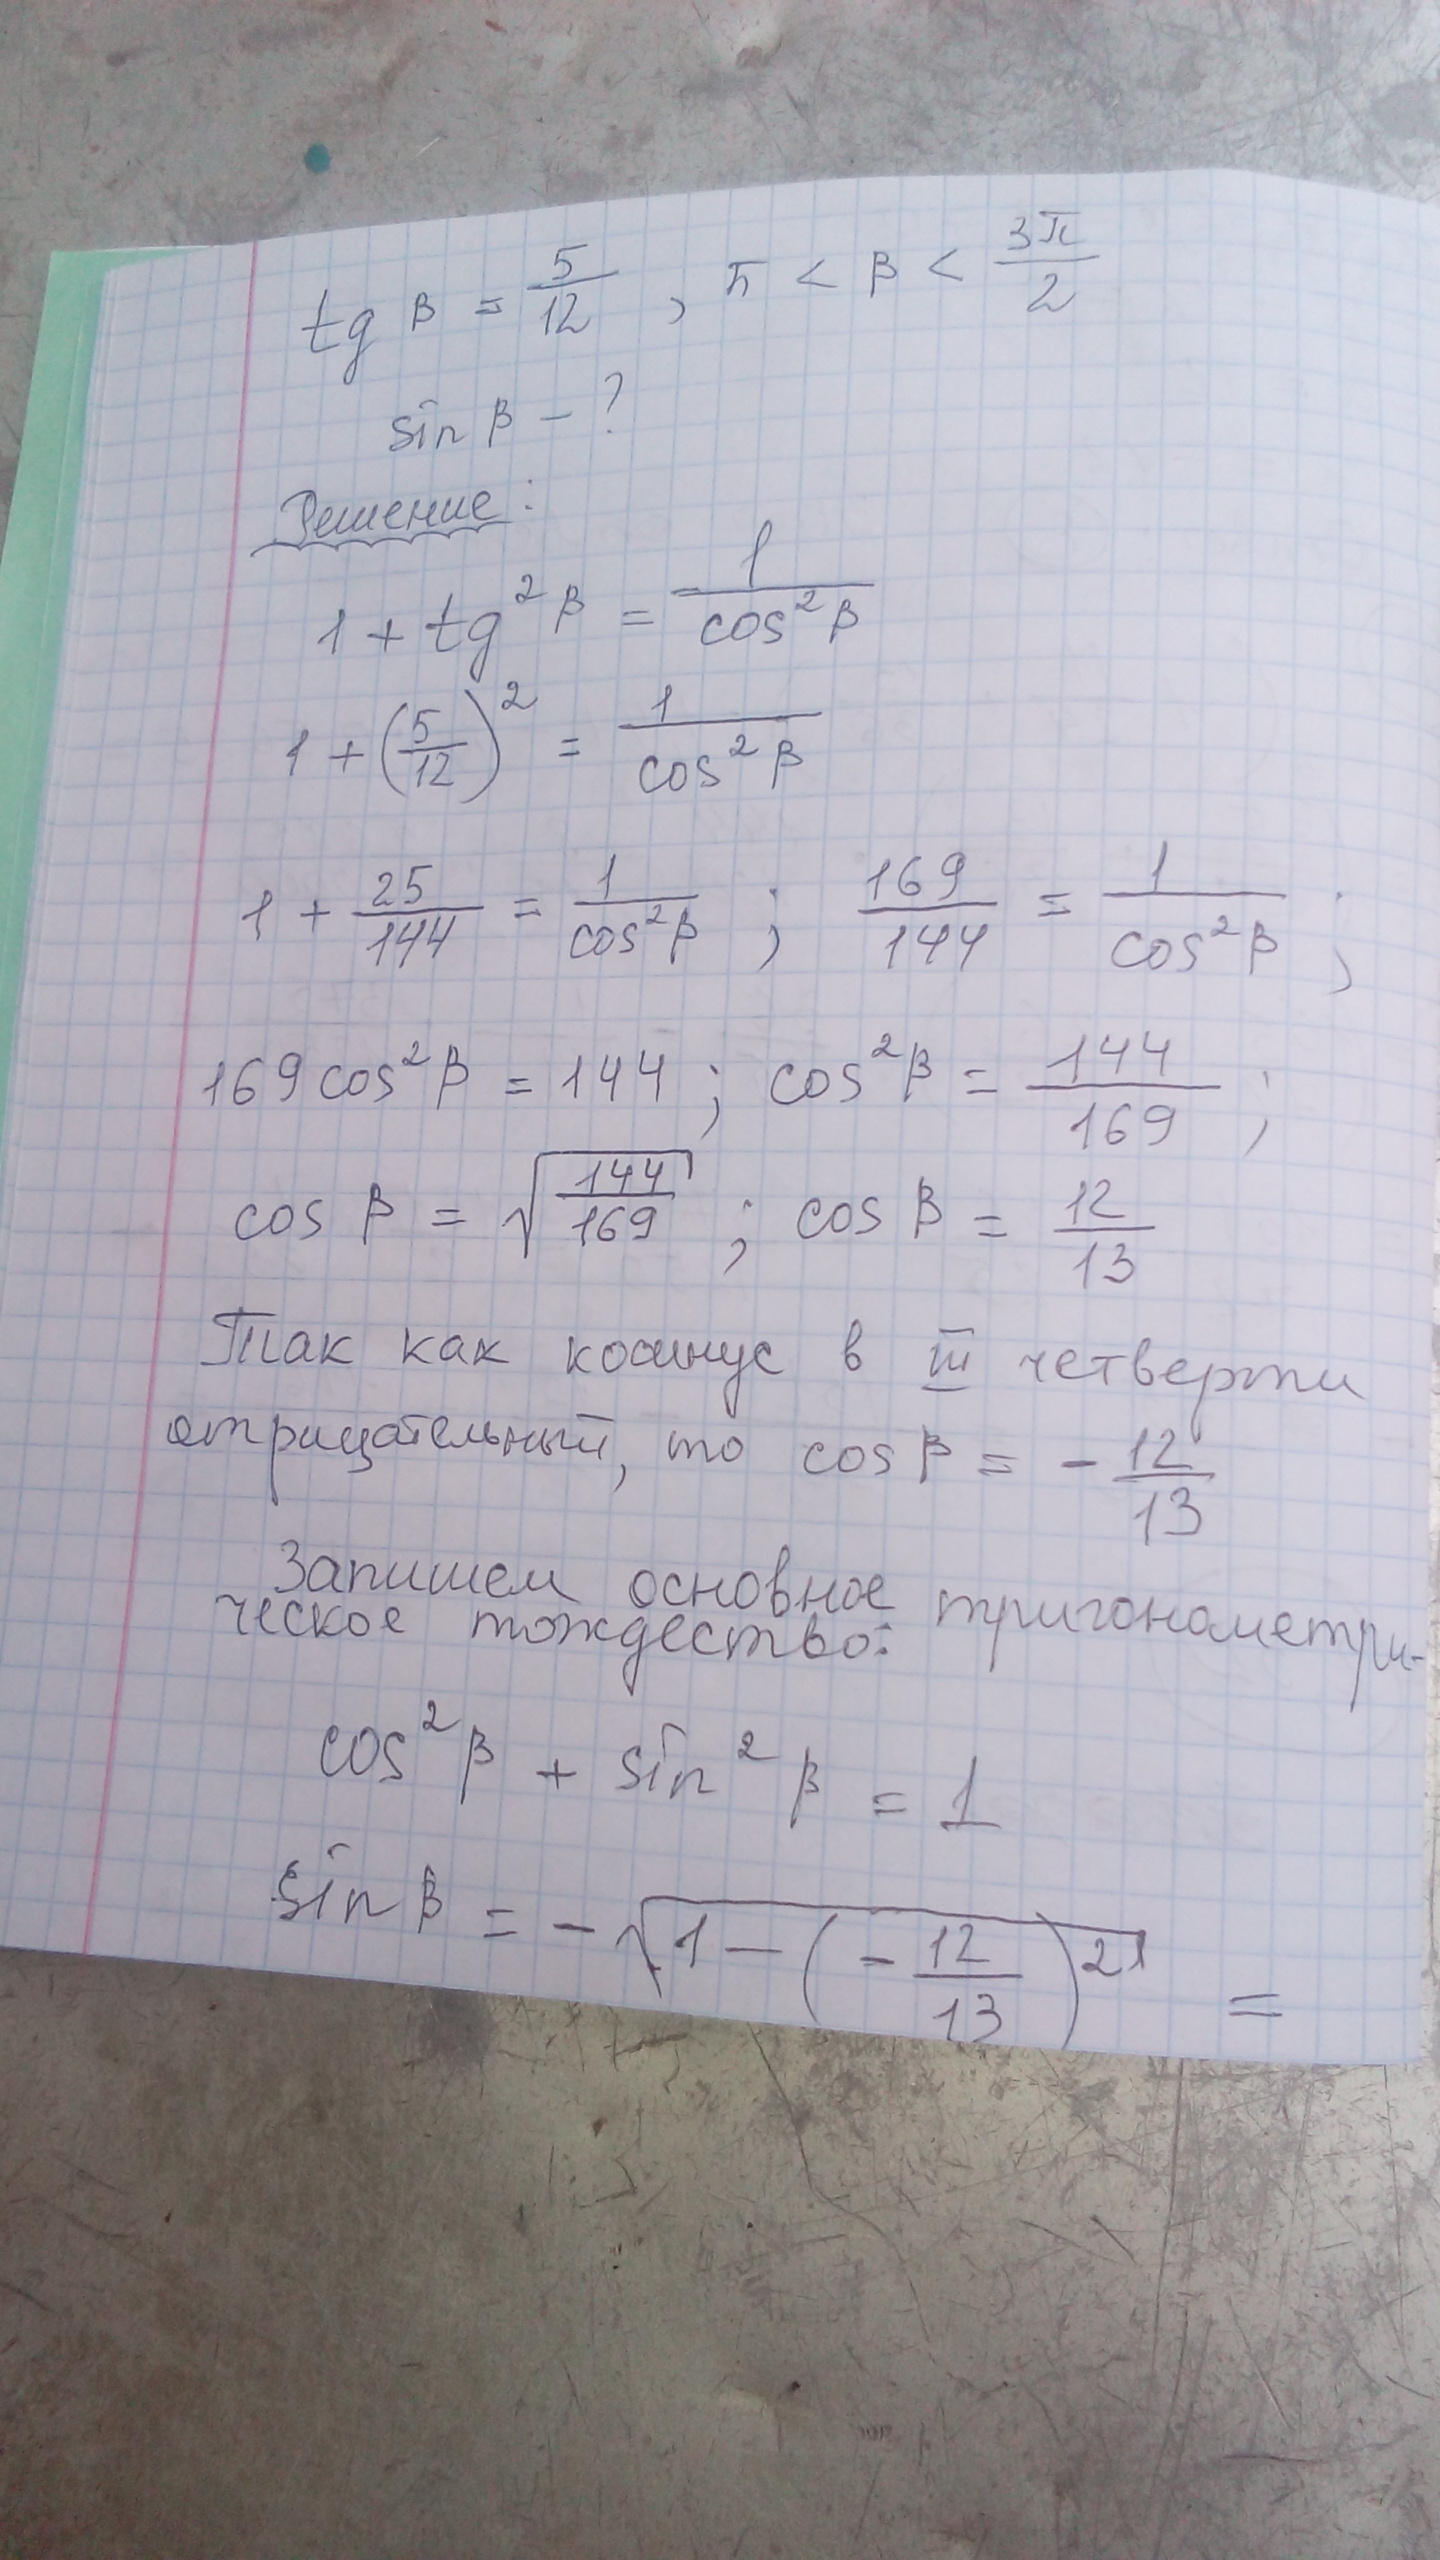 tg β = 5/12 , π < β < 3π/2
sin β - ?
Решение:
1 + tg² β = 1/cos² β
1 + (5/12)² = 1/cos² β
1 + 25/144 = 1/cos² β ; 169/144 = 1/cos² β ;
169 cos² β = 144 ; cos² β = 144/169 ;
cos β = √(144/169) ; cos β = 12/13
Так как косинус в III четверти
отрицательный, то cos β = - 12/13
Запишем основное тригонометри-
ческое тождество:
cos² β + sin² β = 1
sin β = - √(1 - (- 12/13)²) =